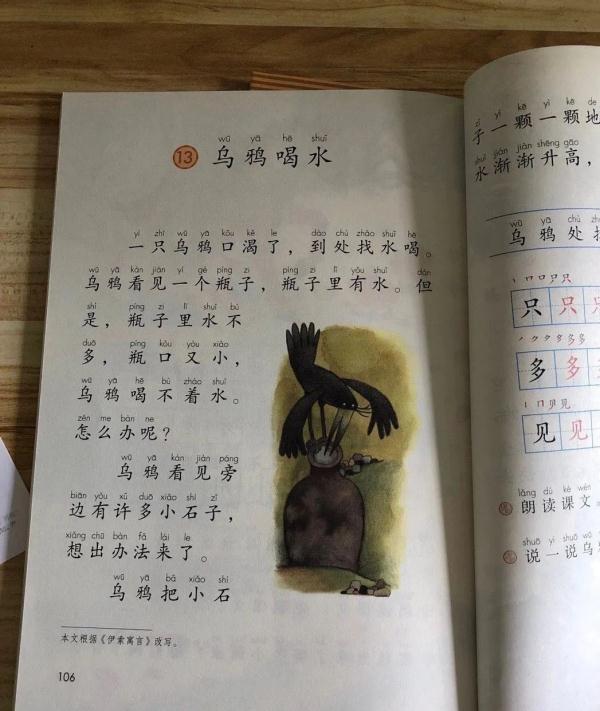 wū yā hē shuǐ
13 乌鸦喝水
yì zhī wū yā kǒu kě le dào chù zhǎo shuǐ hē
一只乌鸦口渴了，到处找水喝。
wū yā kàn jiàn yí gè píng zi píng zi lǐ yǒu shuǐ dàn
乌鸦看见一个瓶子，瓶子里有水。但
shì píng zi lǐ shuǐ bù
是，瓶子里水不
duō píng kǒu yòu xiǎo
多，瓶口又小，
wū yā hē bù zháo shuǐ
乌鸦喝不着水。
zěn me bàn ne
怎么办呢？
wū yā kàn jiàn páng
乌鸦看见旁
biān yǒu xǔ duō xiǎo shí zǐ
边有许多小石子，
xiǎng chū bàn fǎ lái le
想出办法来了。
wū yā bǎ xiǎo shí
乌鸦把小石
本文根据《伊索寓言》改写。
106
zǐ yì kē yì kē de
子一颗一颗地
shuǐ jiàn jiàn shēng gāo
水渐渐升高，
wū yā chù
乌鸦处找
只 只
多 多
见 见
lǎng dú kè wén
朗读课文。
shuō yì shuō wū
说一说乌